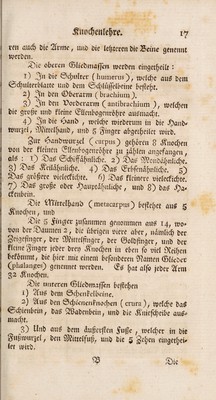 Knochenlehre. 17
ren auch die Arme, und die letzteren die Beine genennt
werden.
Die oberen Gliedmassen werden eingetheilt:
1) In die Schulter (humerus), welche aus dem
Schulterblatte und dem Schlüsselbeine besteht.
2) In den Oberarm (brachium),
3) In den Vorderarm (antibrachium), welchen
die große und kleine Ellenbogenröhre ausmacht, und
4) In die Hand, welche wiederum in die Hand-
wurzel, Mittelhand, und 5 Finger abgetheilet wird.
Zur Handwurzel (carpus) gehören 8 Knochen von
der kleinen Ellenbogenröhre zu zählen angefangen,
als: 1) Das Schiffähnliche. 2) Das Mondähnliche.
3) Das Keilähnliche. 4) Das Erbsenähnliche. 5)
Das größere vieleckichte. 6) Das kleinere vieleckichte.
7) Das große oder Hauptähnliche, und 8) das Ha-
ckenbein.
Die Mittelhand (metacarpus) bestehet aus 5
Knochen, und
Die 5 Finger zusammen genommen aus 14, wo-
von der Daumen 2, die übrigen viere aber, nämlich der
Zeigefinger, der Mittelfinger, der Goldfinger, und der
kleine Finger jeder drey Knochen in eben so viel Reihen
bekommt, die hier mit einem besonderen Namen Glieder
(phalanges) genennet werden. Es hat also jeder Arm
32 Knochen.
Die unteren Gliedmassen bestehen
1) Aus dem Schenkelbeine.
2) Aus den Schienenknochen (crura), welche das
Schienbein, das Wadenbein, und die Kniescheibe aus-
macht.
3) Und aus dem äußersten Fuße, welcher in die
Fußwurzel, den Mittelfuß, und die 5 Zehen eingethei-
let wird.
B Die